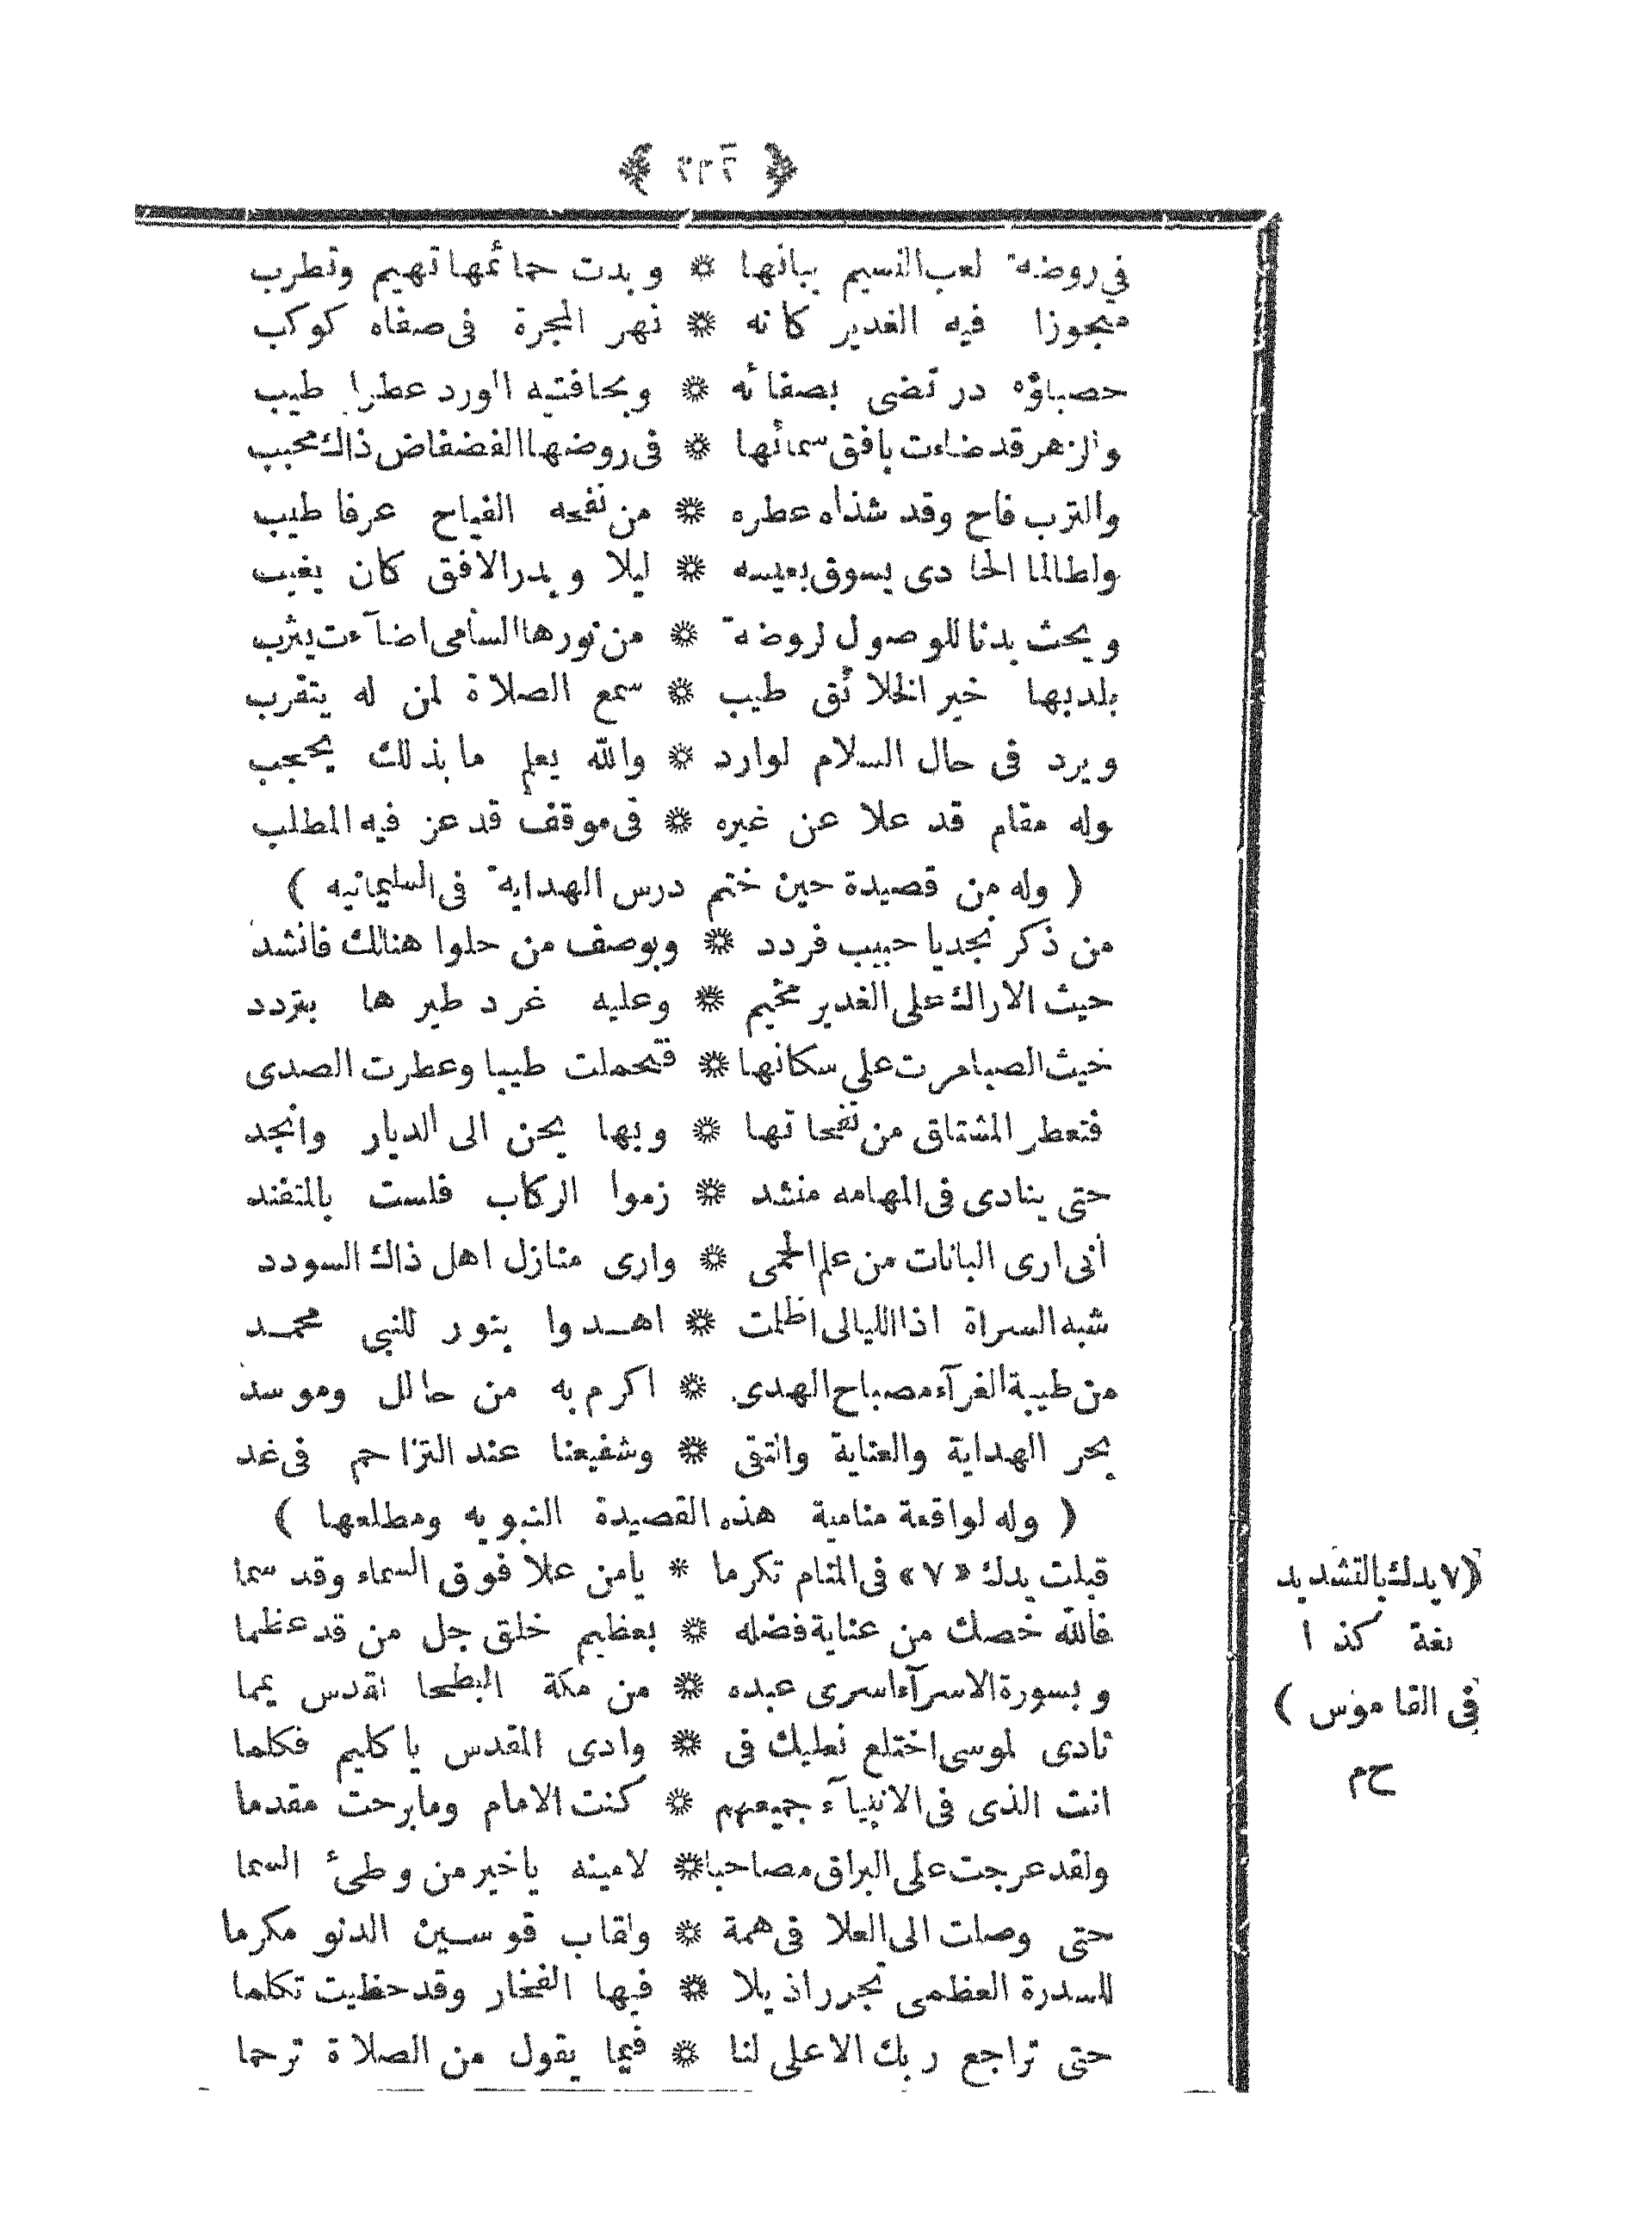 في روضة لعب النسيم ببانها * وبدت حمائمها تهيم وتطرب
فيه الغدير كانه * نهر المجرة فى صفاه كوكب
حصباؤه در تضى بصفائه * وبحافتيه الورد عطرا طيب
والزهر قد ضاءت بافق سمائها * فى روضها الفضفاض ذاك محبب
والترب فاح وقد شذاه عطره * من نفحه الفياح عرفا طيب
ولطالما الحادى يسوق بعيسه * ليلا وبدر الافق كان يغيب
ويحث بدنا للوصول لروضة * من نورها السامى اضآءت يثرب
بلد بها خير الخلائق طيب * سمع الصلاة لمن له يتقرب
ويرد فى حال السلام لوارد * والله يعلم ما بذلك يحجب
وله مقام قد علا عن غيره * فى موقف قد عز فيه المطلب
( وله من قصيدة حين ختم درس الهداية فى السليمانيه )
من ذكر نجد يا حبيب فردد * وبوصف من حلوا هنالك فانشد
حيث الاراك على الغدير مخيم * وعليه غرد طيرها بتردد
حيث الصبا مرت على سكانها * فتحملت طيبا وعطرت الصدى
فتعطر المشتاق من نفحاتها * وبها يحن الى الديار وانجد
حتى ينادى فى المهامه منشد * زموا الركاب فلست بالمتفند
أنى ارى البانات من علم الحمى * وارى منازل اهل ذاك السودد
شبه السراة اذا الليالى اظلمت * اهدوا بنور للنبى محمد
من طيبة الغرآء مصباح الهدى * اكرم به من حالل وموسد
بحر الهداية والعناية والتقى * وشفيعنا عند التزاحم فى غد
( وله لواقعة منامية هذه القصيدة النبويه ومطلعها )
قبلت يدك «٧» فى المنام تكرما * يامن علا فوق السماء وقد سما
فالله خصك من عناية فضله * بعظيم خلق جل من قد عظما
وبسورة الاسرآء اسرى عبده * من مكة البطحا لقدس يمما
نادى لموسى اختلع نعليك فى * وادى المقدس يا كليم فكلما
انت الذى فى الانبيآء جميعهم * كنت الامام وما برحت مقدما
ولقد عرجت على البراق مصاحبا * لامينه ياخير من وطئ السما
حتى وصلت الى العلا فى همة * ولقاب قوسين الدنو مكرما
للسدرة العظمى تجرر اذيلا * فيها الفخار وقد حظيت تكلما
حتى تراجع ربك الاعلى لنا * فيما يقول من الصلاة ترحما
(٧ يدك بالتشديد
لغة كذا
فى القاموس )
ح م